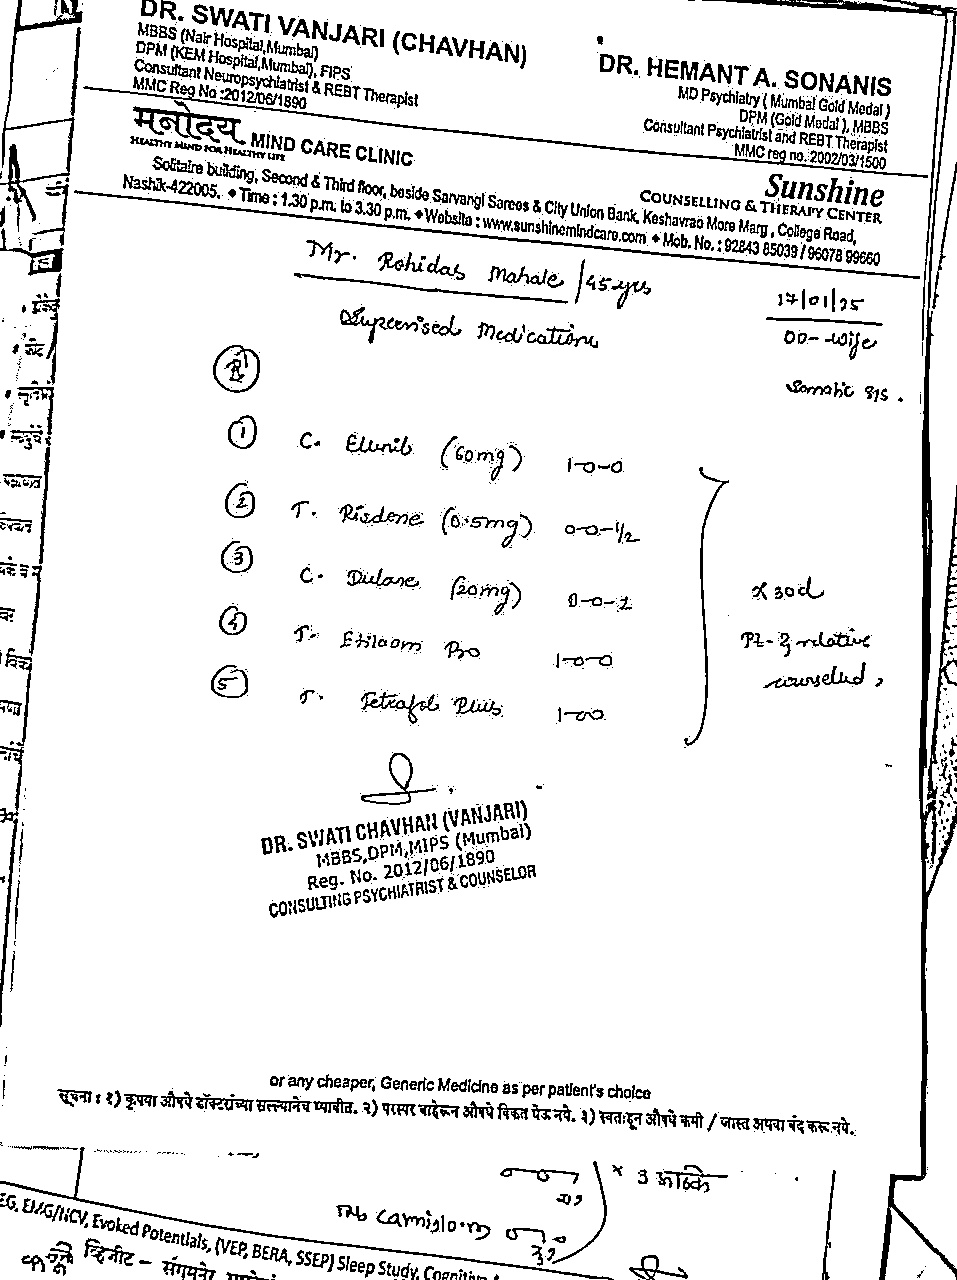 DR. SWATI VANJARI (CHAVHAN)
MBBS (Nair Hospital,Mumbai)
DPM (KEM Hospital,Mumbai), FIPS
Consultant Neuropsychiatrist & REBT Therapist
MMC Reg No :2012/06/1890
DR. HEMANT A. SONANIS
MD Psychiatry ( Mumbai Gold Medal )
DPM (Gold Medal ), MBBS
Consultant Psychiatrist and REBT Therapist
MMC reg no. 2002/03/1500
मनोदय MIND CARE CLINIC
HEALTHY MIND FOR HEALTHY LIFE
Sunshine
COUNSELLING & THERAPY CENTER
Solitaire building, Second & Third floor, beside Sarvangi Sarees & City Union Bank, Keshavrao More Marg , College Road,
Nashik-422005. ♦ Time : 1.30 p.m. to 3.30 p.m. ♦ Website : www.sunshinemindcare.com ♦ Mob. No. : 92843 85039 / 96078 99660
Mr. Rohidas Mahale /45 yrs
17/01/25
Supervised Medications
OO- wife
Somatic
R
1 C. Elunib (60mg) 1-0-0
2 T. Risdene (0.5mg) 0-0-1/2
3 C. Dulane (20mg) 0-0-1
x 30d
4 T. Etilaam Pro 1-0-0
Pt - & relative
counselled,
5 T. Tetrafol Plus 1-00
DR. SWATI CHAVHAN (VANJARI)
MBBS,DPM,MIPS (Mumbai)
Reg. No. 2012/06/1890
CONSULTING PSYCHIATRIST & COUNSELOR
or any cheaper, Generic Medicine as per patient's choice
सूचना : १) कृपया औषधे डॉक्टरांच्या सल्ल्यानेच घ्यावीत. २) परस्पर बाहेरून औषधे विकत घेऊ नये. ३) स्वतःहून औषधे कमी / जास्त अथवा बंद करू नये.
x 3
EG, EMG/NCV, Evoked Potentials, (VEP, BERA, SSEP) Sleep Study, Cognitive